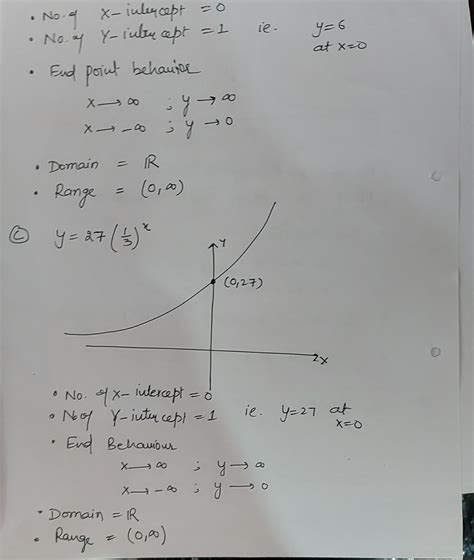 • No. of X-intercept = 0
• No. of Y-intercept = 1 ie. y=6
at x=0
• End point behavior
x → ∞ ; y → ∞
x → -∞ ; y → 0
• Domain = ℝ
• Range = (0,∞)
Ⓒ y = 27 (1/3)^x
y
(0,27)
x
• No. of X-intercept = 0
• No of Y-intercept = 1 ie. y=27 at
x=0
• End Behaviour
x → ∞ ; y → ∞
x → -∞ ; y → 0
• Domain = ℝ
• Range = (0,∞)